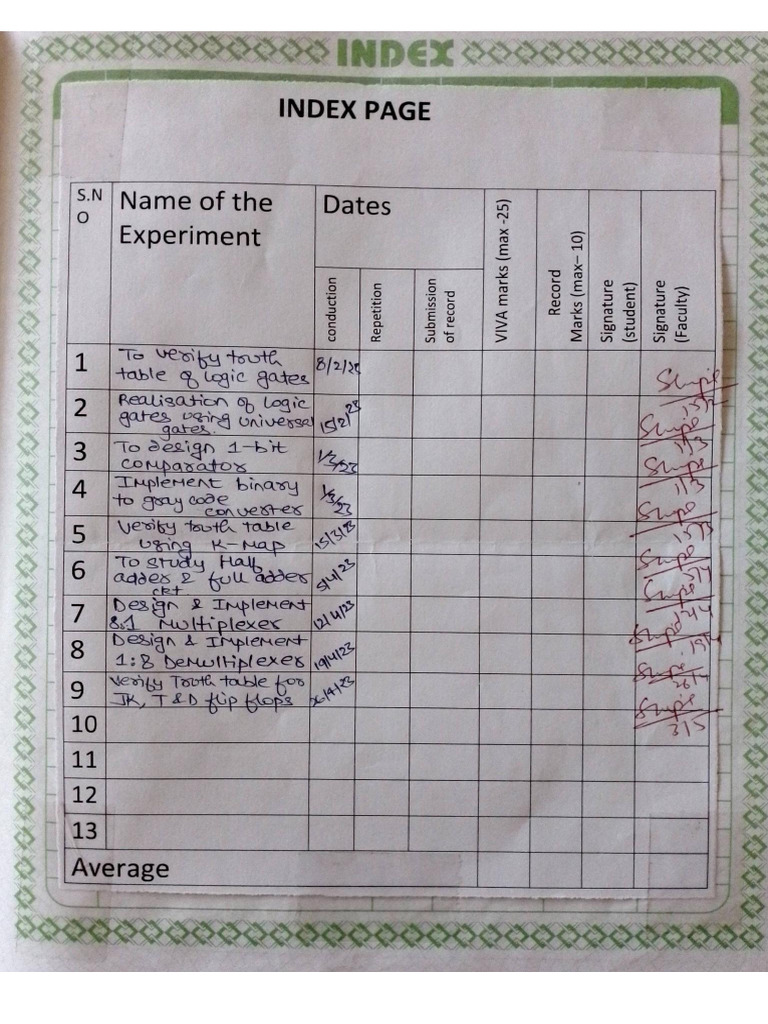 INDEX
INDEX PAGE
S.N
O
Name of the
Experiment
Dates
conduction
Repetition
Submission
of record
VIVA marks (max -25)
Record
Marks (max– 10)
Signature
(student)
Signature
(Faculty)
1
To verify truth
table of logic gates
8/2/23
2
Realisation of logic
gates using universal
gates.
15/2/23
15/2
3
To design 1-bit
comparator
1/3/23
1/3
4
Implement binary
to gray code
converter
1/3/23
1/3
5
Verify truth table
using K-Map
15/3/23
15/3
6
To study Half
adder & full adder
ckt
5/4/23
5/4
7
Design & Implement
8:1 Multiplexer
12/4/23
12/4
8
Design & Implement
1:8 Demultiplexer
19/4/23
19/4
9
Verify Truth table for
JK, T & D flip flops
26/4/23
26/4
10
3/5
11
12
13
Average